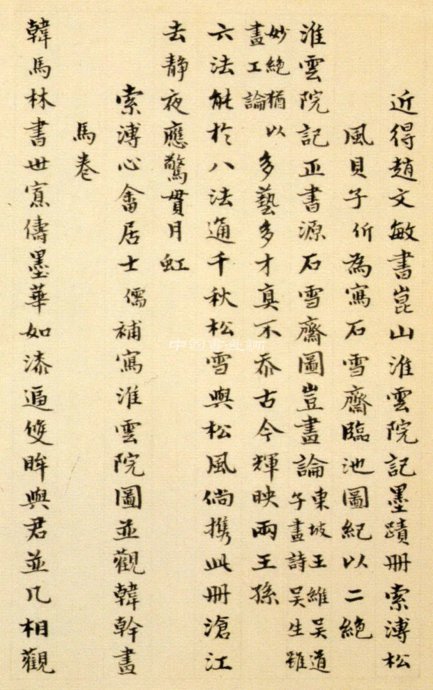 近得趙文敏書崑山淮雲院記墨蹟册索溥松
風貝子伒為寫石雪齋臨池圖紀以二絶
淮雲院記正書源石雪齋圖豈畫論
東坡王維吳道
子畫詩吳生雖
妙絶猶以
畫工論
多藝多才真不忝古今輝映兩王孫
六法能於八法通千秋松雪與松風倘携此册滄江
去静夜應驚貫月虹
索溥心畬居士儒補寫淮雲院圖並觀韓幹畫
馬卷
韓馬林書世寡儔墨華如漆逼雙眸與君並几相觀